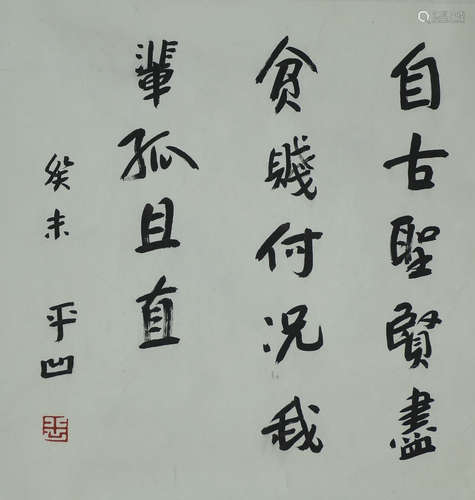 自古聖賢盡
貧賤何況我
輩孤且直
癸未 平凹